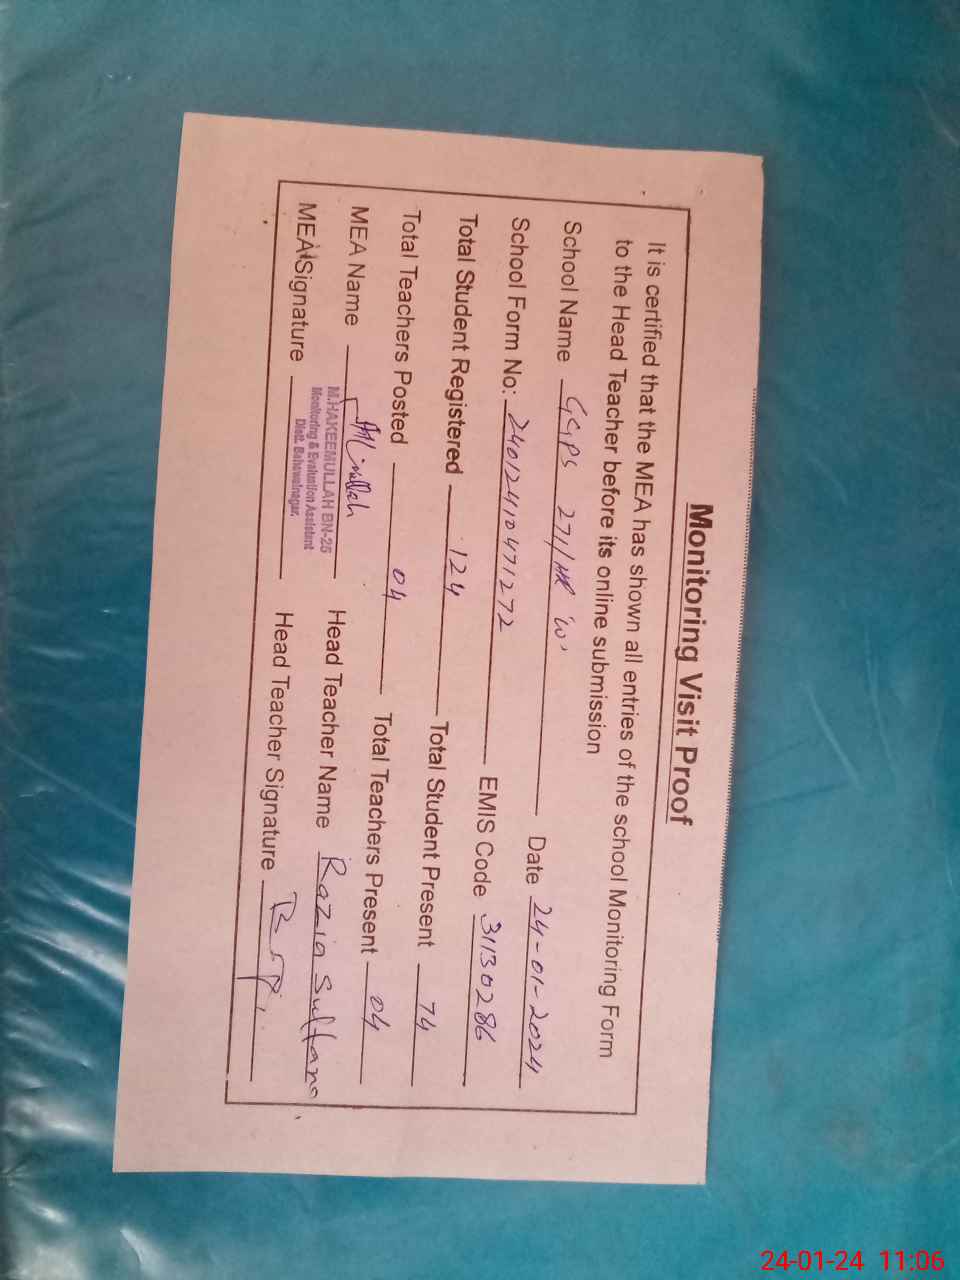 Monitoring Visit Proof
It is certified that the MEA has shown all entries of the school Monitoring Form
to the Head Teacher before its online submission
School Name GGPS 271/HR 'W' Date 24-01-2024
School Form No: 24012410471272 EMIS Code 31130286
Total Student Registered 124 Total Student Present 74
Total Teachers Posted 04 Total Teachers Present 04
MEA Name Head Teacher Name Razia Sultana
M.HAKEEMULLAH BN-25
Monitoring & Evaluation Assistant
Distt. Bahawalnagar.
MEA Signature Head Teacher Signature
24-01-24 11:06